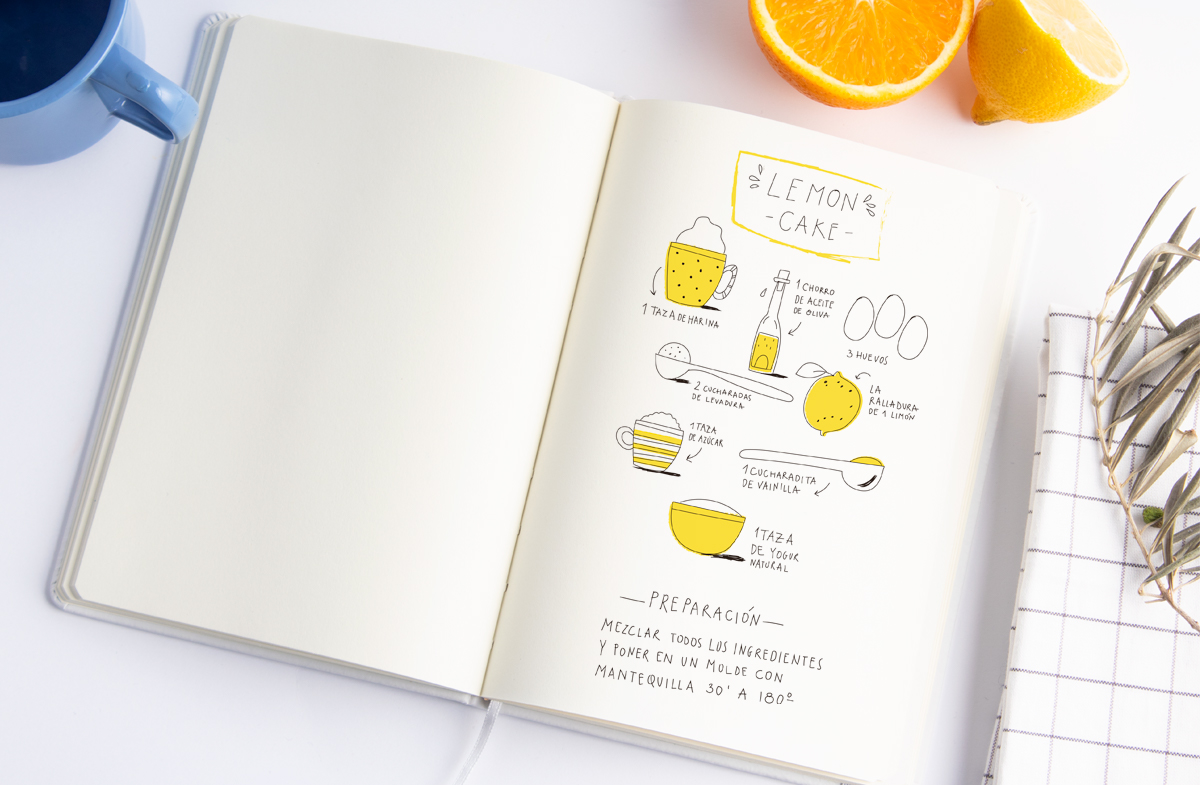 LEMON
- CAKE -
1 TAZA DE HARINA
1 CHORRO
DE ACEITE
DE OLIVA
3 HUEVOS
2 CUCHARADAS
DE LEVADURA
LA
RALLADURA
DE 1 LIMÓN
1 TAZA
DE AZÚCAR
1 CUCHARADITA
DE VAINILLA
1 TAZA
DE YOGUR
NATURAL
— PREPARACIÓN —
MEZCLAR TODOS LOS INGREDIENTES
Y PONER EN UN MOLDE CON
MANTEQUILLA 30' A 180º